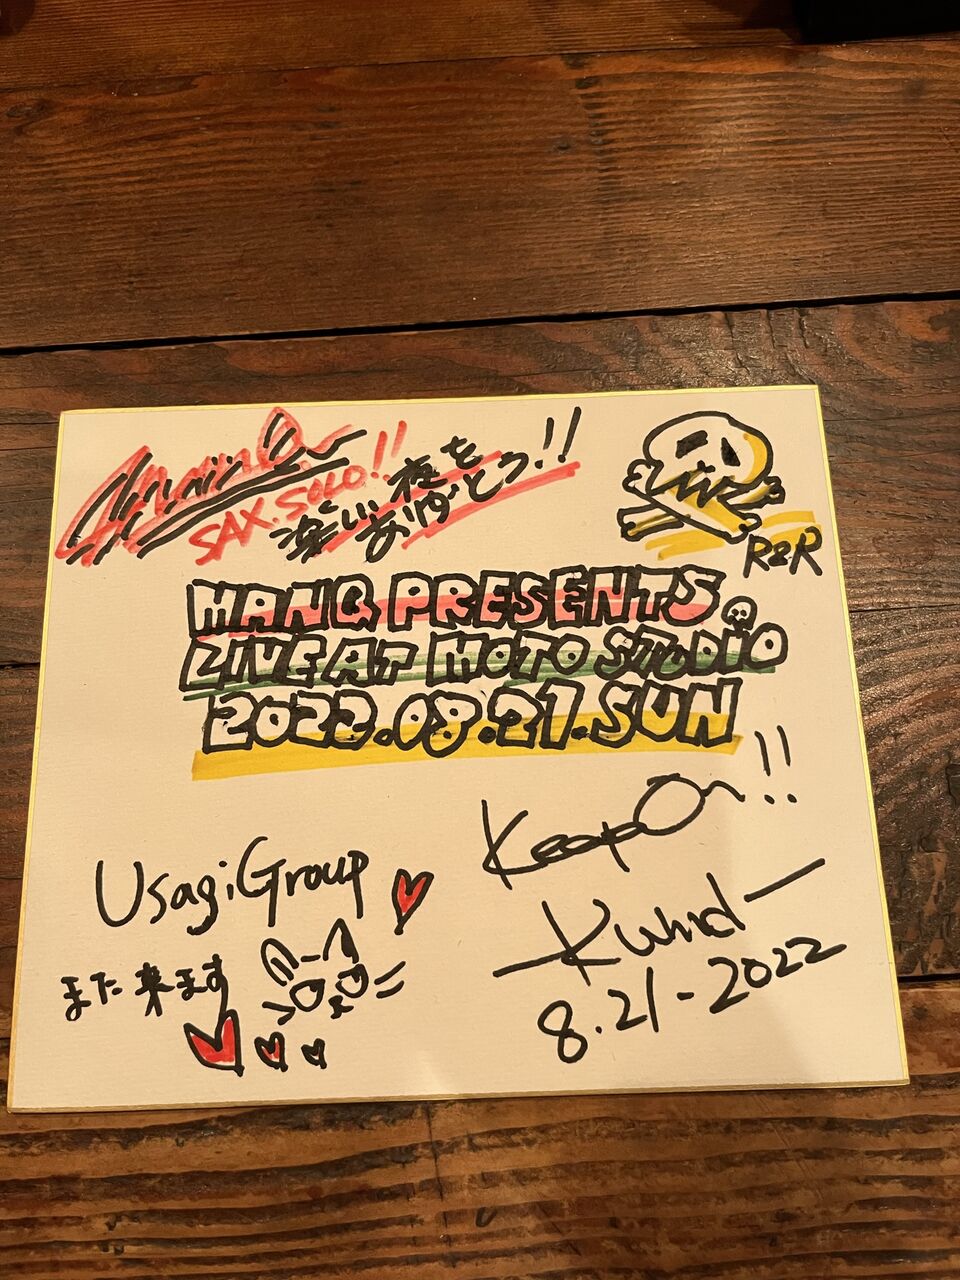 ManQ
SAX.SOLO!!
楽しい夜を
ありがとう!!
R&R
MANQ PRESENTS.
LIVE AT MOTO STUDIO
2022.08.21.SUN
Keep On!!
UsagiGroup
また来ます
8.21-2022